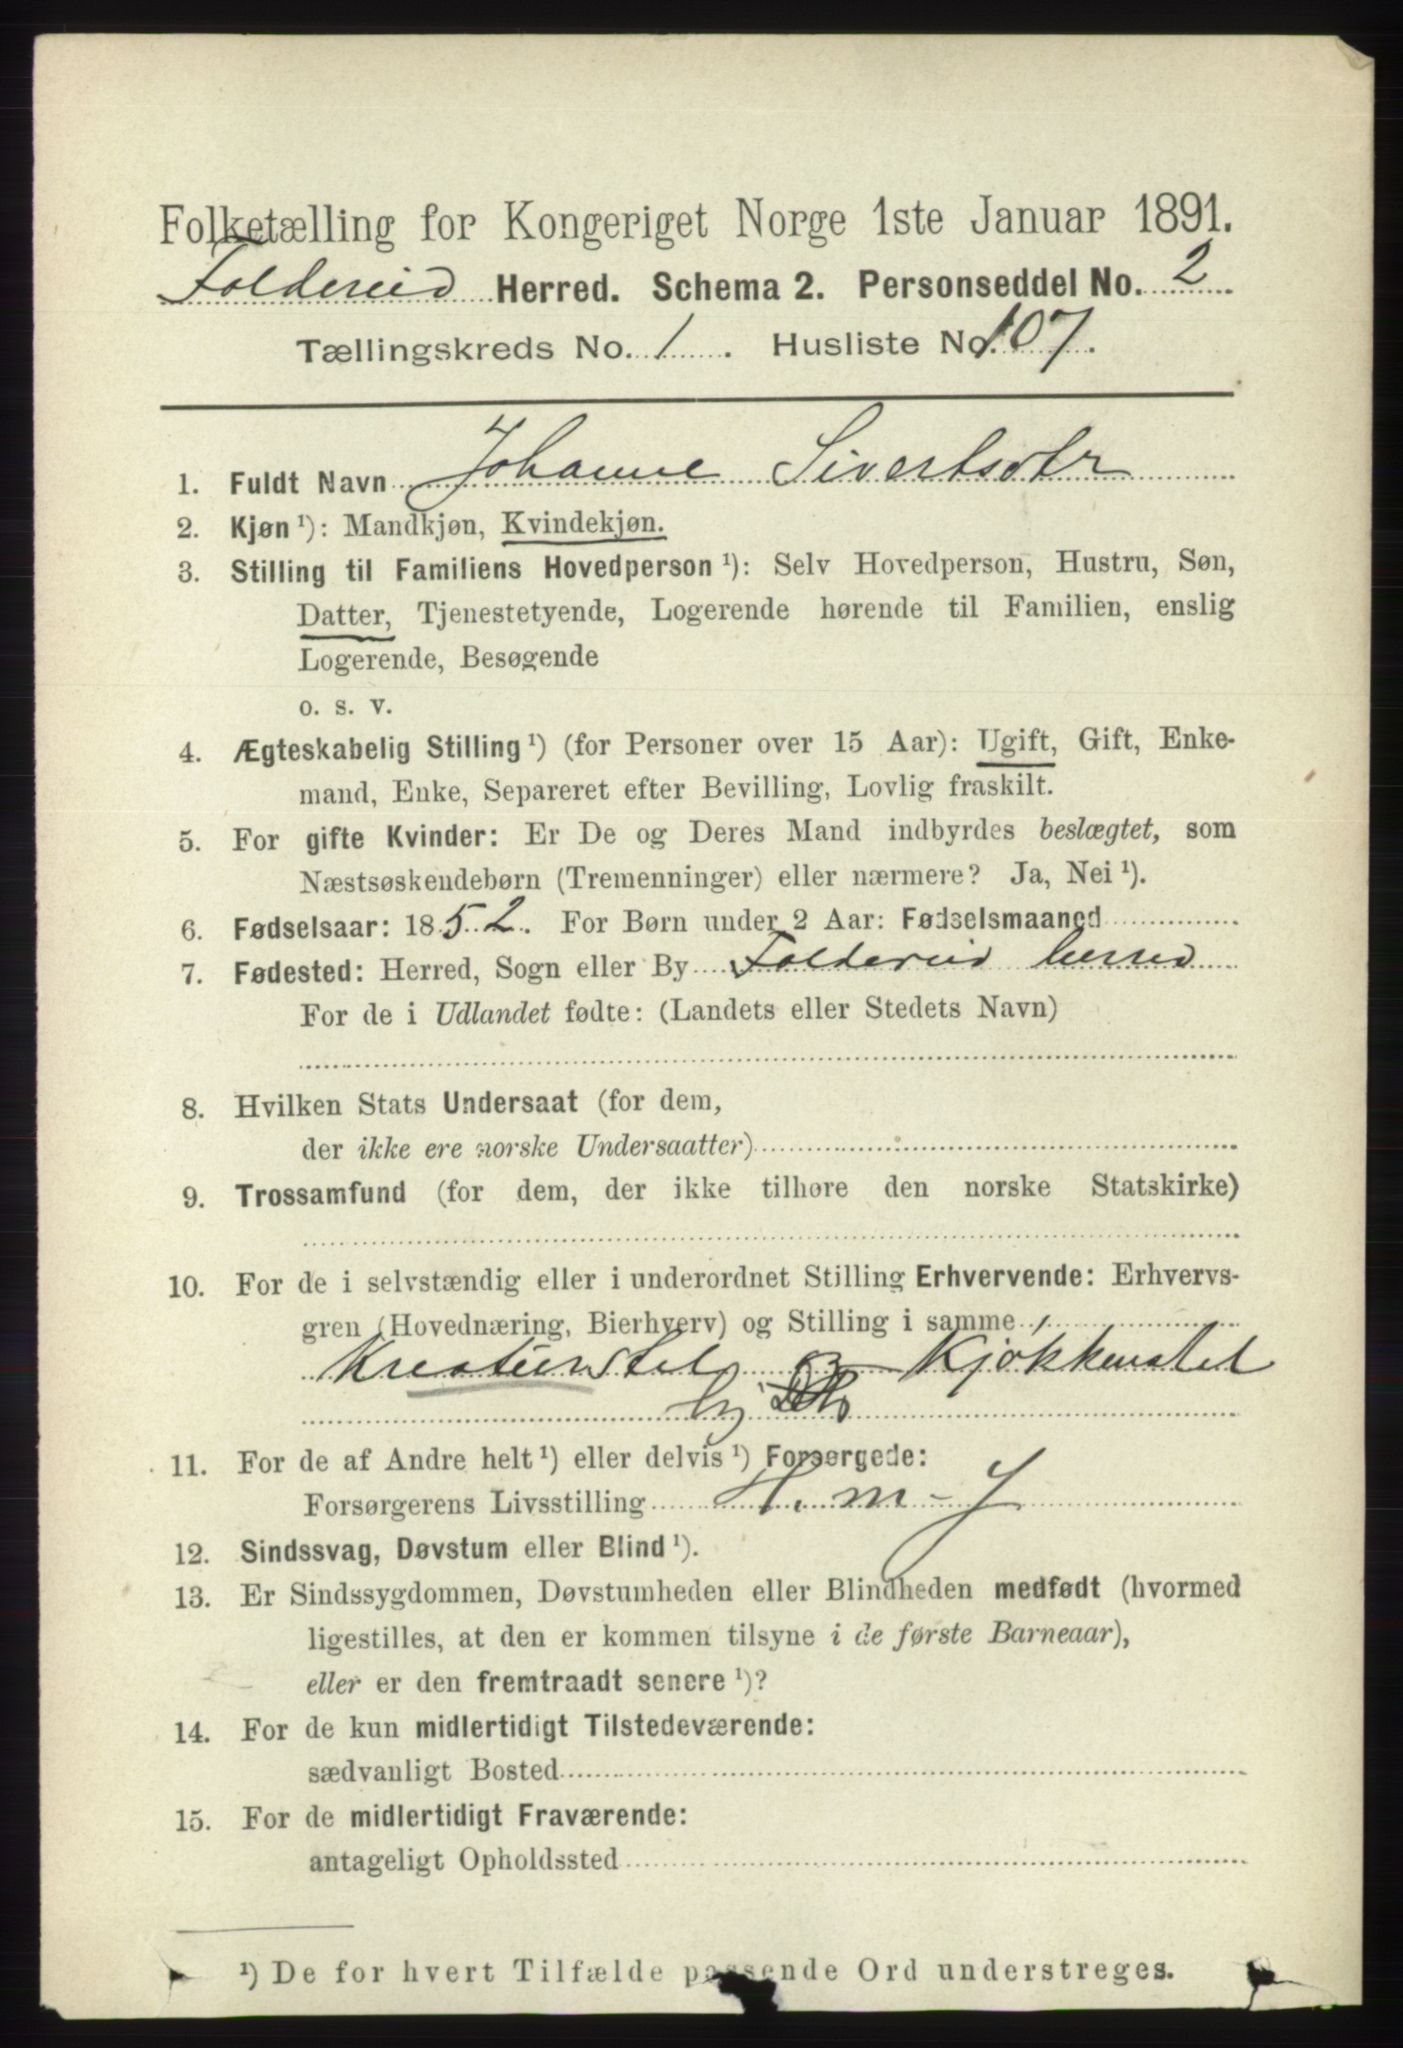 Folketælling for Kongeriget Norge 1ste Januar 1891.
Foldereid Herred. Schema 2. Personseddel No. 2
Tællingskreds No. 1. Husliste No. 107.
1. Fuldt Navn Johanne Sivertsdtr
2. Kjøn ¹): Mandkjøn, Kvindekjøn.
3. Stilling til Familiens Hovedperson ¹): Selv Hovedperson, Hustru, Søn,
Datter, Tjenestetyende, Logerende hørende til Familien, enslig
Logerende, Besøgende
o. s. v.
4. Ægteskabelig Stilling ¹) (for Personer over 15 Aar): Ugift, Gift, Enke-
mand, Enke, Separeret efter Bevilling, Lovlig fraskilt.
5. For gifte Kvinder: Er De og Deres Mand indbyrdes beslægtet, som
Næstsøskendebørn (Tremenninger) eller nærmere? Ja, Nei ¹).
6. Fødselsaar: 1852. For Børn under 2 Aar: Fødselsmaaned
7. Fødested: Herred, Sogn eller By Foldereid herred
For de i Udlandet fødte: (Landets eller Stedets Navn)
8. Hvilken Stats Undersaat (for dem,
der ikke ere norske Undersaatter)
9. Trossamfund (for dem, der ikke tilhøre den norske Statskirke)
10. For de i selvstændig eller i underordnet Stilling Erhvervende: Erhvervs-
gren (Hovednæring, Bierhverv) og Stilling i samme
Kreaturstel og Kjøkkenstel
11. For de af Andre helt ¹) eller delvis ¹) Forsørgede:
Forsørgerens Livsstilling H. m - J
12. Sindssvag, Døvstum eller Blind ¹).
13. Er Sindssygdommen, Døvstumheden eller Blindheden medfødt (hvormed
ligestilles, at den er kommen tilsyne i de første Barneaar),
eller er den fremtraadt senere ¹)?
14. For de kun midlertidigt Tilstedeværende:
sædvanligt Bosted
15. For de midlertidigt Fraværende:
antageligt Opholdssted
¹) De for hvert Tilfælde passende Ord understreges.